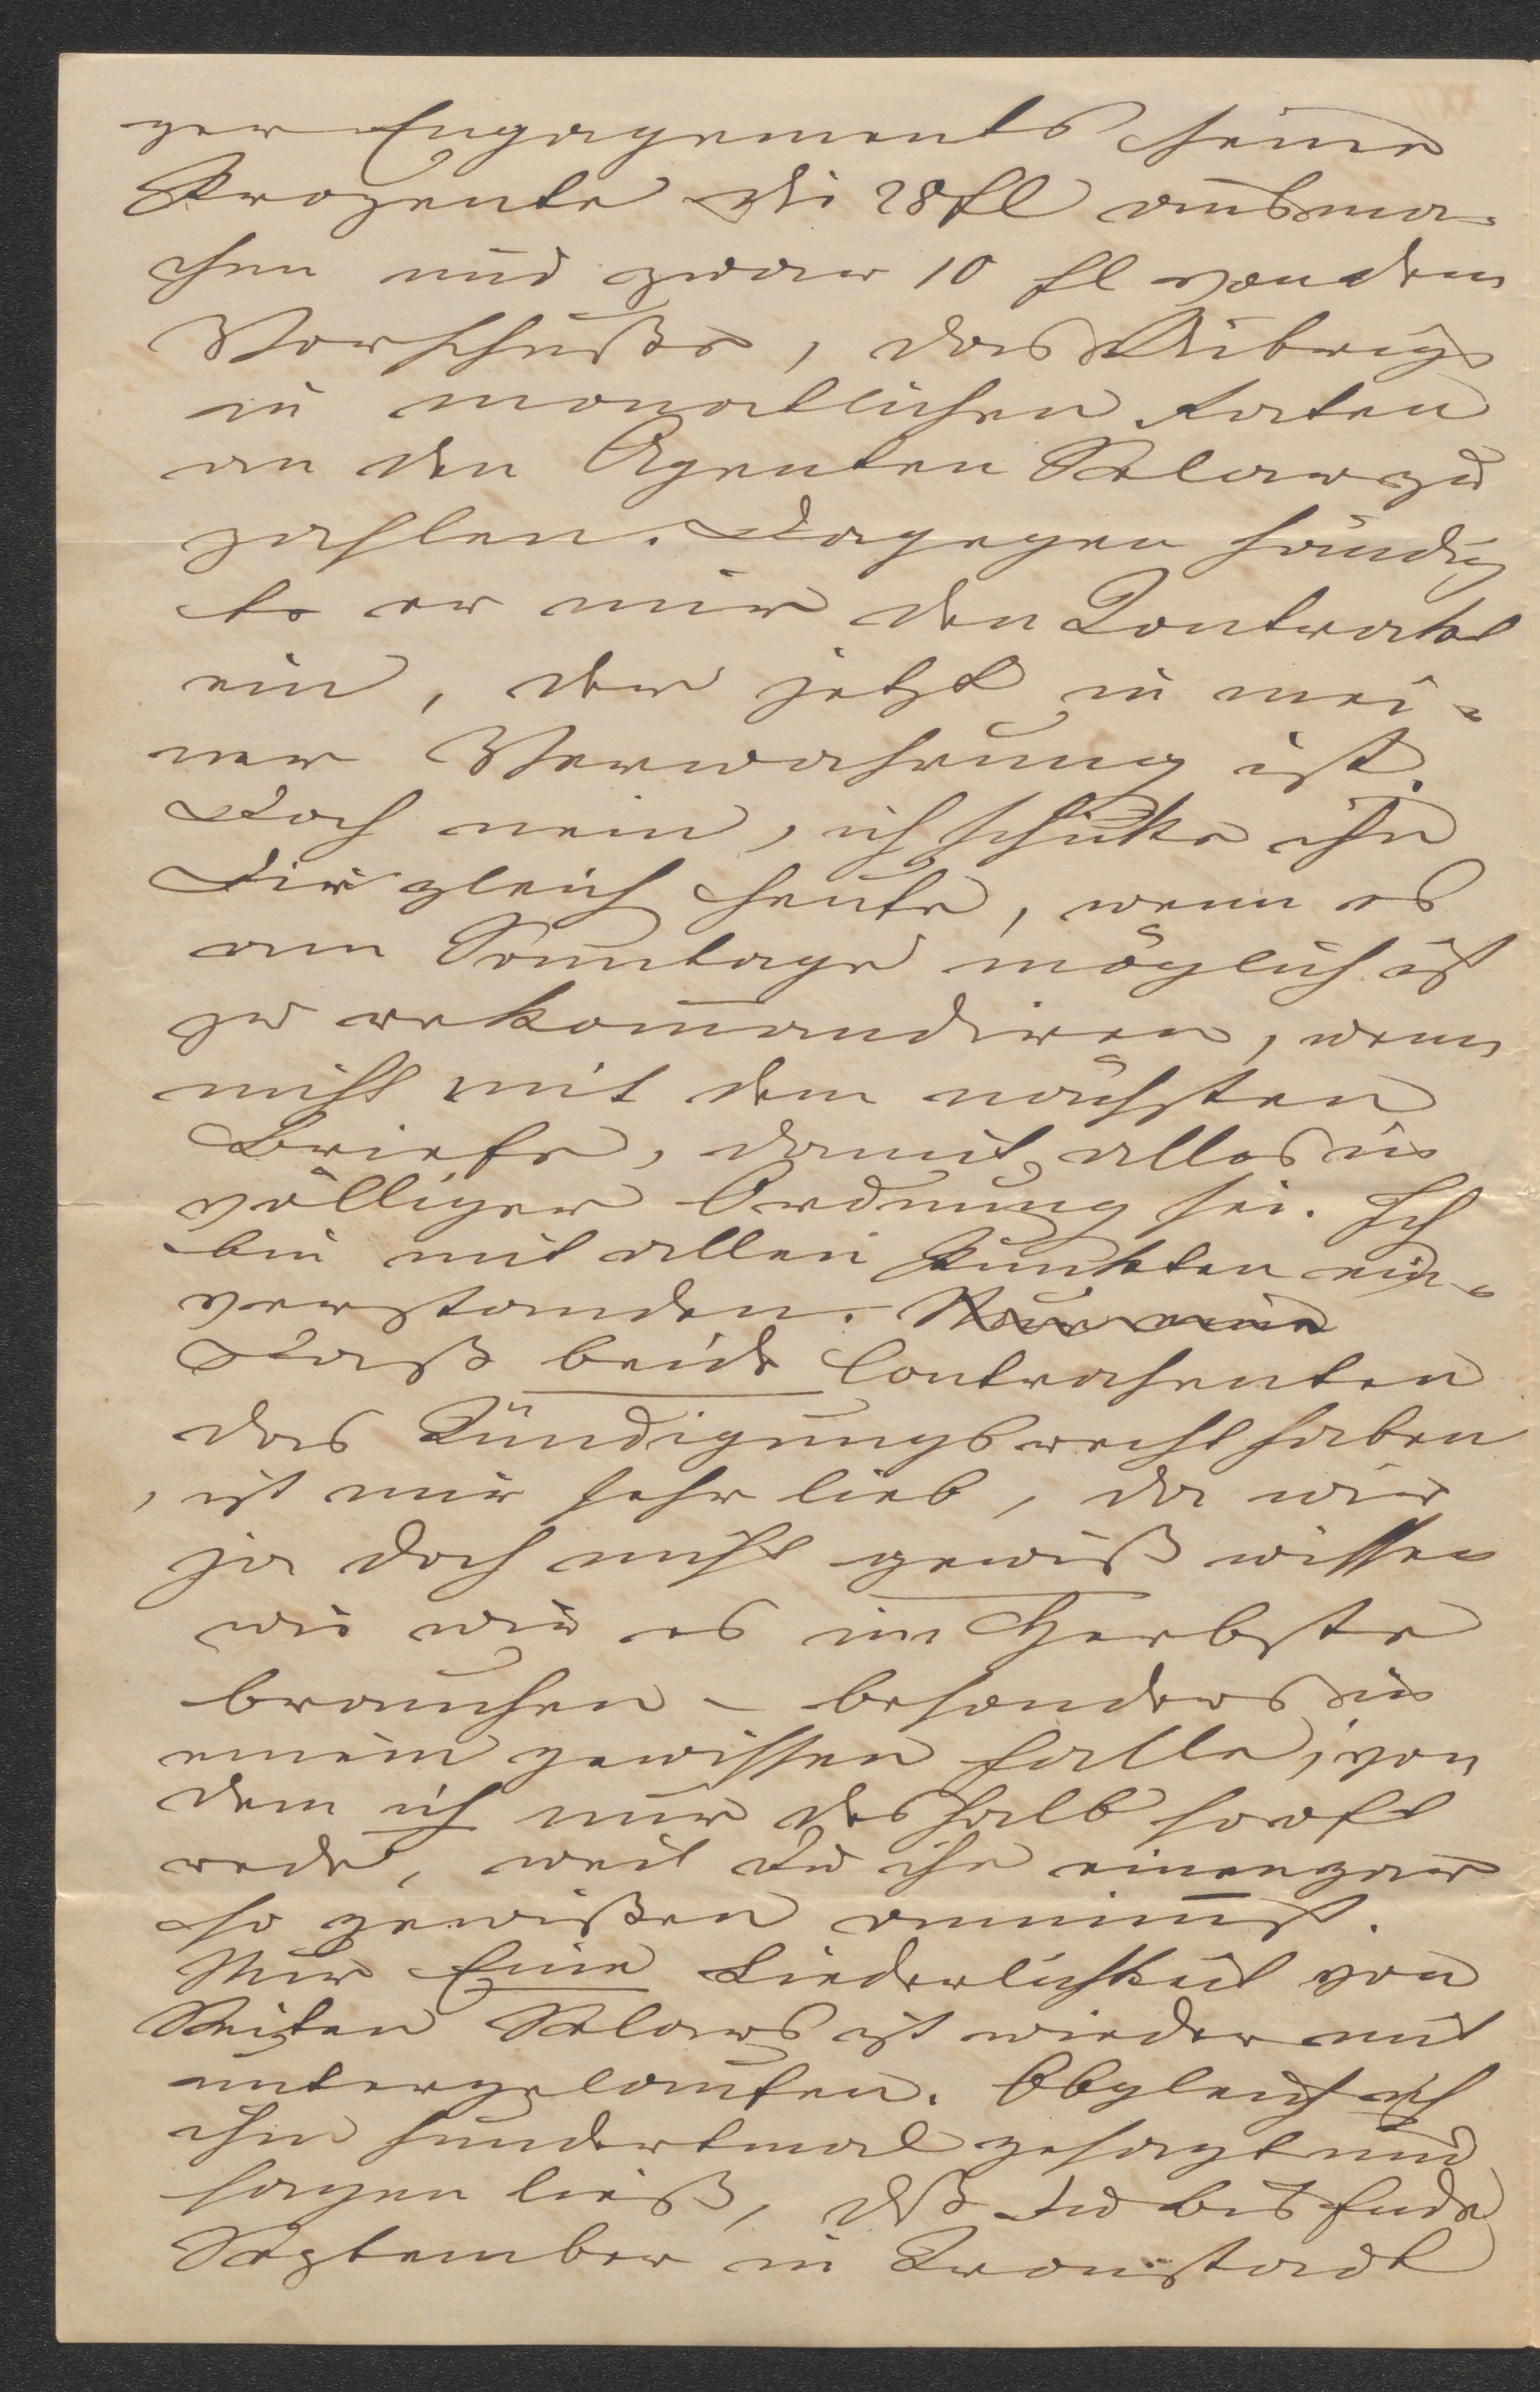 ger Engagements seine
Prozente die 28 fl ausma-
chen und zwar 10 fl von dem
Vorschuße, das Übrige
in monatlichen Raten
an den Agenten Sklarz zu
zahlen. Dagegen händig
te er mir den Kontrakt
ein, der jetzt in mei-
ner Verwahrung ist.
Doch nein, ich schicke ihn
Dir gleich heute, wenn es
am Sonntage möglich ist
zu rekommandiren, wenn
nicht mit dem nächsten
Briefe, damit alles in
völliger Ordnung sei. Ich
bin mit allen Punkten ein-
verstanden. Nur eine
Daß beide Contrahenten
das Kündigungsrecht haben
, ist mir sehr lieb, da wir
ja doch nicht gewiß wissen
wie wir es im Herbste
brauchen – besonders in
einem gewissen Falle, von
dem ich nur deshalb so oft
rede, weil Du ihn einen gar
so gewißen annimmst.
Nur Eine Liederlichkeit von
Seiten ist wieder mit
untergelaufen. Obgleich ich
ihm hundertmal gesagt und
sagen ließ, daß Du bis Ende
September in Kronstadt